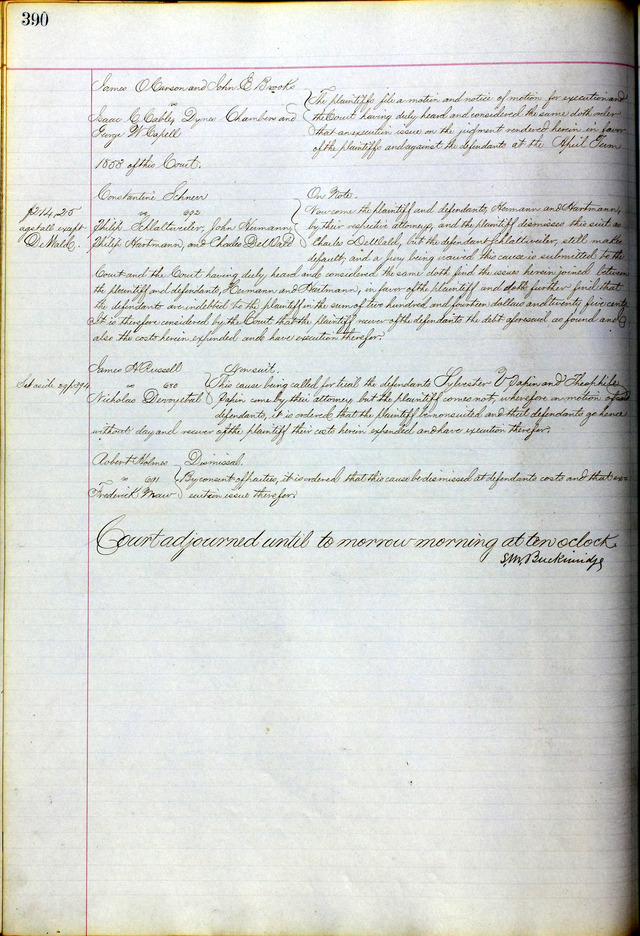 390
James O Carson and John E Brooks
vs
Isaac C Cables, Dyner Chambers and
George W Capell
The plaintiffs file a motion and notice of motion for execution and
the Court having duly heard and considered the same doth order
that an execution issue on the judgment rendered herein in favor
of the plaintiffs and against the defendants at the April Term
1858 of this Court.
Constantine Schneer
vs 692
Philip Schlatweiler, John Hermann,
Philip Hartmann, and Charles DeWald
$214,25
agst all except
DeWald.
On Note.
Now come the plaintiff and defendants, Hermann and Hartmann,
by their respective attorneys, and the plaintiff dismisses this suit as
Charles DeWald, but the defendant Schlatweiler, still makes
default, and a jury being waived this cause is submitted to the
Court and the Court having duly heard and considered the same doth find the issues herein joined between
the plaintiff and defendants, Hermann and Hartmann, in favor of the plaintiff and doth further find that
the defendants are indebted to the plaintiff in the sum of two hundred and fourteen dollars and twenty five cents
It is therefore considered by the Court that the plaintiff recover of the defendants the debt aforesaid as found and
also the costs herein expended and have execution therefor.
James H Russell
vs 680
Nicholas Devoystal
Set aside 29/p 394
Nonsuit.
This cause being called for trial the defendants Sylvester V Papin and Theophile
Papin come by their attorney but the plaintiff comes not, wherefore on motion of said
defendants, it is ordered that the plaintiff be nonsuited and that defendants go hence
without day and recover of the plaintiff their costs herein expended and have execution therefor.
Robert Holmes
vs 691
Frederick Maw
Dismissal.
By consent of parties, it is ordered that this cause be dismissed at defendants costs and that ex=
ecution issue therefor.
Court adjourned until to morrow morning at ten o clock
S, M, Buckinridge